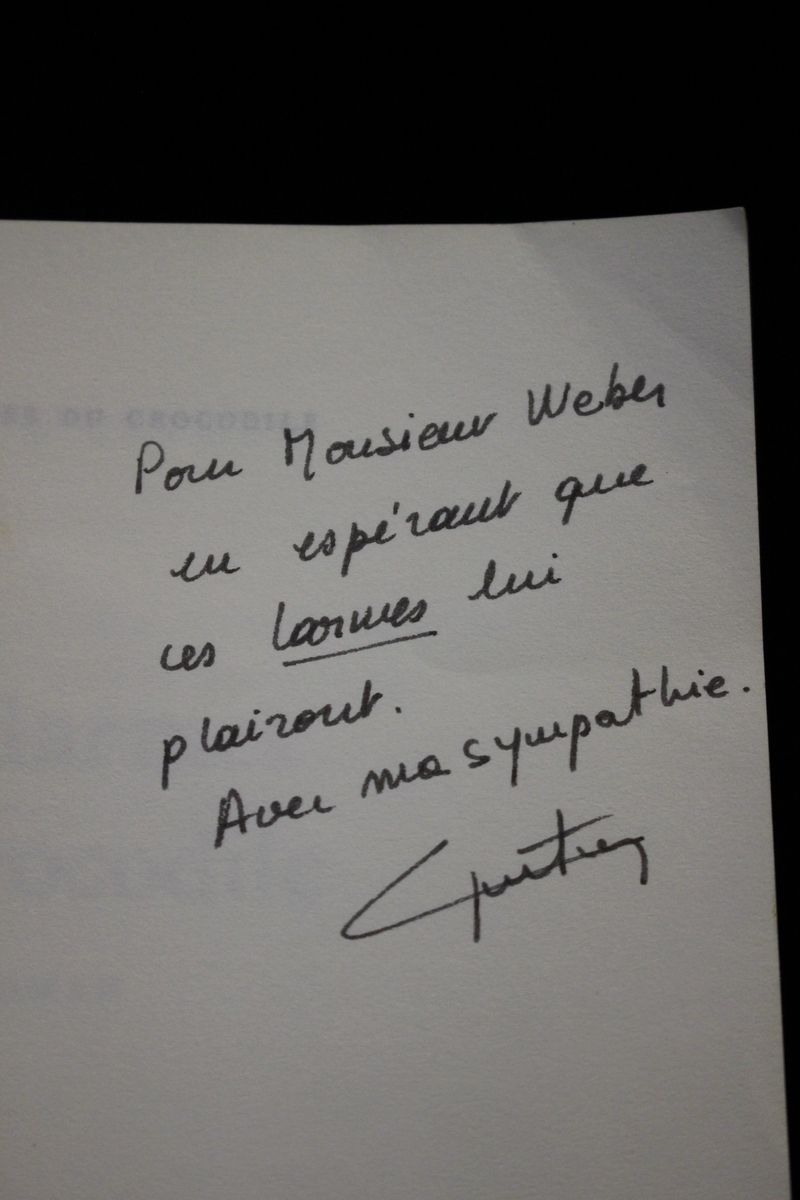 DU CROCODILE
Pour Monsieur Weber
en espérant que
ces larmes lui
plairont.
Avec ma sympathie.